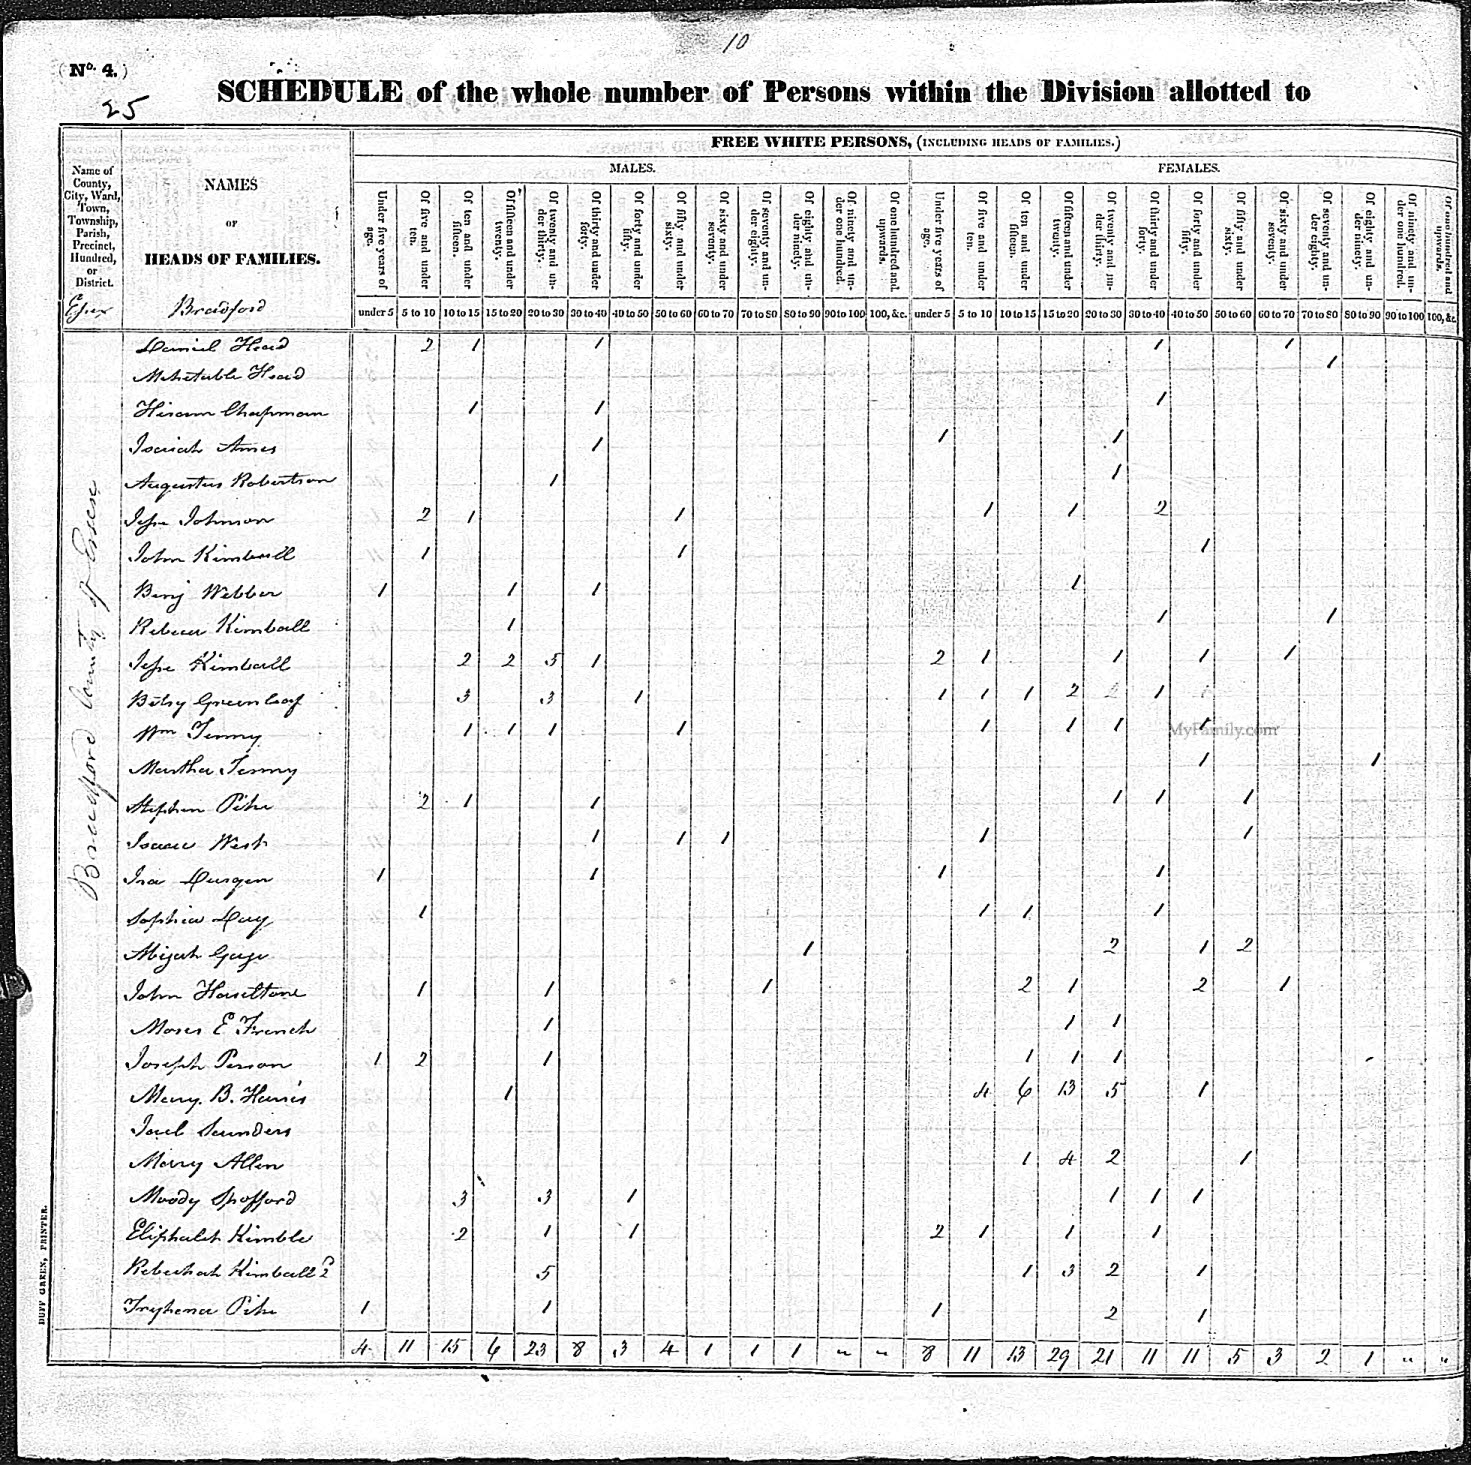 10
(No. 4.)
25
SCHEDULE of the whole number of Persons within the Division allotted to
FREE WHITE PERSONS, (INCLUDING HEADS OF FAMILIES.)
MALES. FEMALES.
Name of County, City, Ward, Town, Township, Parish, Precinct, Hundred, or District.
NAMES
OF
HEADS OF FAMILIES.
Under five years of age. Of five and under ten. Of ten and under fifteen. Of fifteen and under twenty. Of twenty and under thirty. Of thirty and under forty. Of forty and under fifty. Of fifty and under sixty. Of sixty and under seventy. Of seventy and under eighty. Of eighty and under ninety. Of ninety and under one hundred. Of one hundred and upwards. Under five years of age. Of five and under ten. Of ten and under fifteen. Of fifteen and under twenty. Of twenty and under thirty. Of thirty and under forty. Of forty and under fifty. Of fifty and under sixty. Of sixty and under seventy. Of seventy and under eighty. Of eighty and under ninety. Of ninety and under one hundred. Of one hundred and upwards.
Essex Bradford under 5 5 to 10 10 to 15 15 to 20 20 to 30 30 to 40 40 to 50 50 to 60 60 to 70 70 to 80 80 to 90 90 to 100 100, &c. under 5 5 to 10 10 to 15 15 to 20 20 to 30 30 to 40 40 to 50 50 to 60 60 to 70 70 to 80 80 to 90 90 to 100 100, &c.
Bradford County of Essex
Daniel Head 2 1 1 1 1
Mehetable Head 1
Hiram Chapman 1 1 1
Isaiah Ames 1 1 1
Augustus Robertson 1 1
Jesse Johnson 2 1 1 1 1 2
John Kimball 1 1 1
Benj Webber 1 1 1 1
Rebecca Kimball 1 1 1
Jesse Kimball 2 2 5 1 2 1 1 1 1
Betsy Greenleaf 3 3 1 1 1 1 2 1
Wm Tenny 1 1 1 1 1 1 1 1
MyFamily.com
Martha Tenny 1 1
Stephen Pike 2 1 1 1 1 1
Isaac West 1 1 1 1 1
Ira Durgen 1 1 1 1
Sophia Day 1 1 1 1
Abijah Gage 1 2 1 2
John Haseltine 1 1 1 2 1 2 1
Moses E French 1 1 1
Joseph Person 1 2 1 1 1 1
Mary. B. Harris 1 4 6 13 5 1
Saunders
Mary Allen 1 4 2 1
Moody Spofford 3 3 1 1 1 1
Eliphalet Kimble 2 1 1 2 1 1 1
Rebechah Kimball 2 5 1 3 2 1
Tryhena Pike 1 1 1 2 1
4 11 15 6 23 8 3 4 1 1 1 " " 8 11 13 29 21 11 11 5 3 2 1 " "
DUFF GREEN, PRINTER.